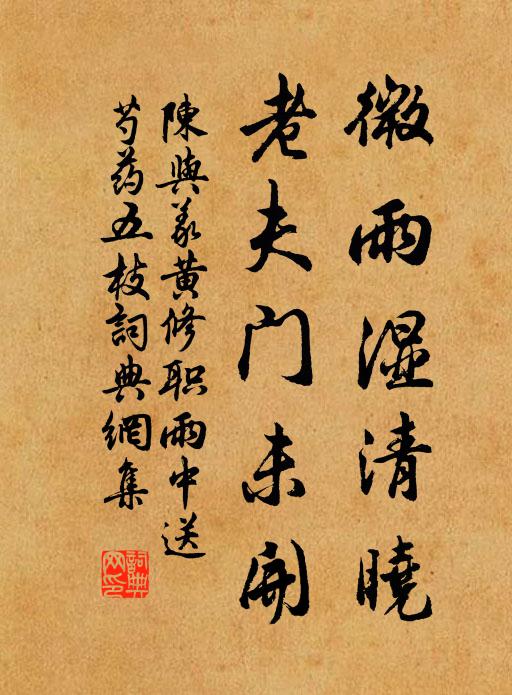 微雨湿清曉
老夫門未開
陳與義黄修职雨中送
芍药五枝詞典網集
詞典网印